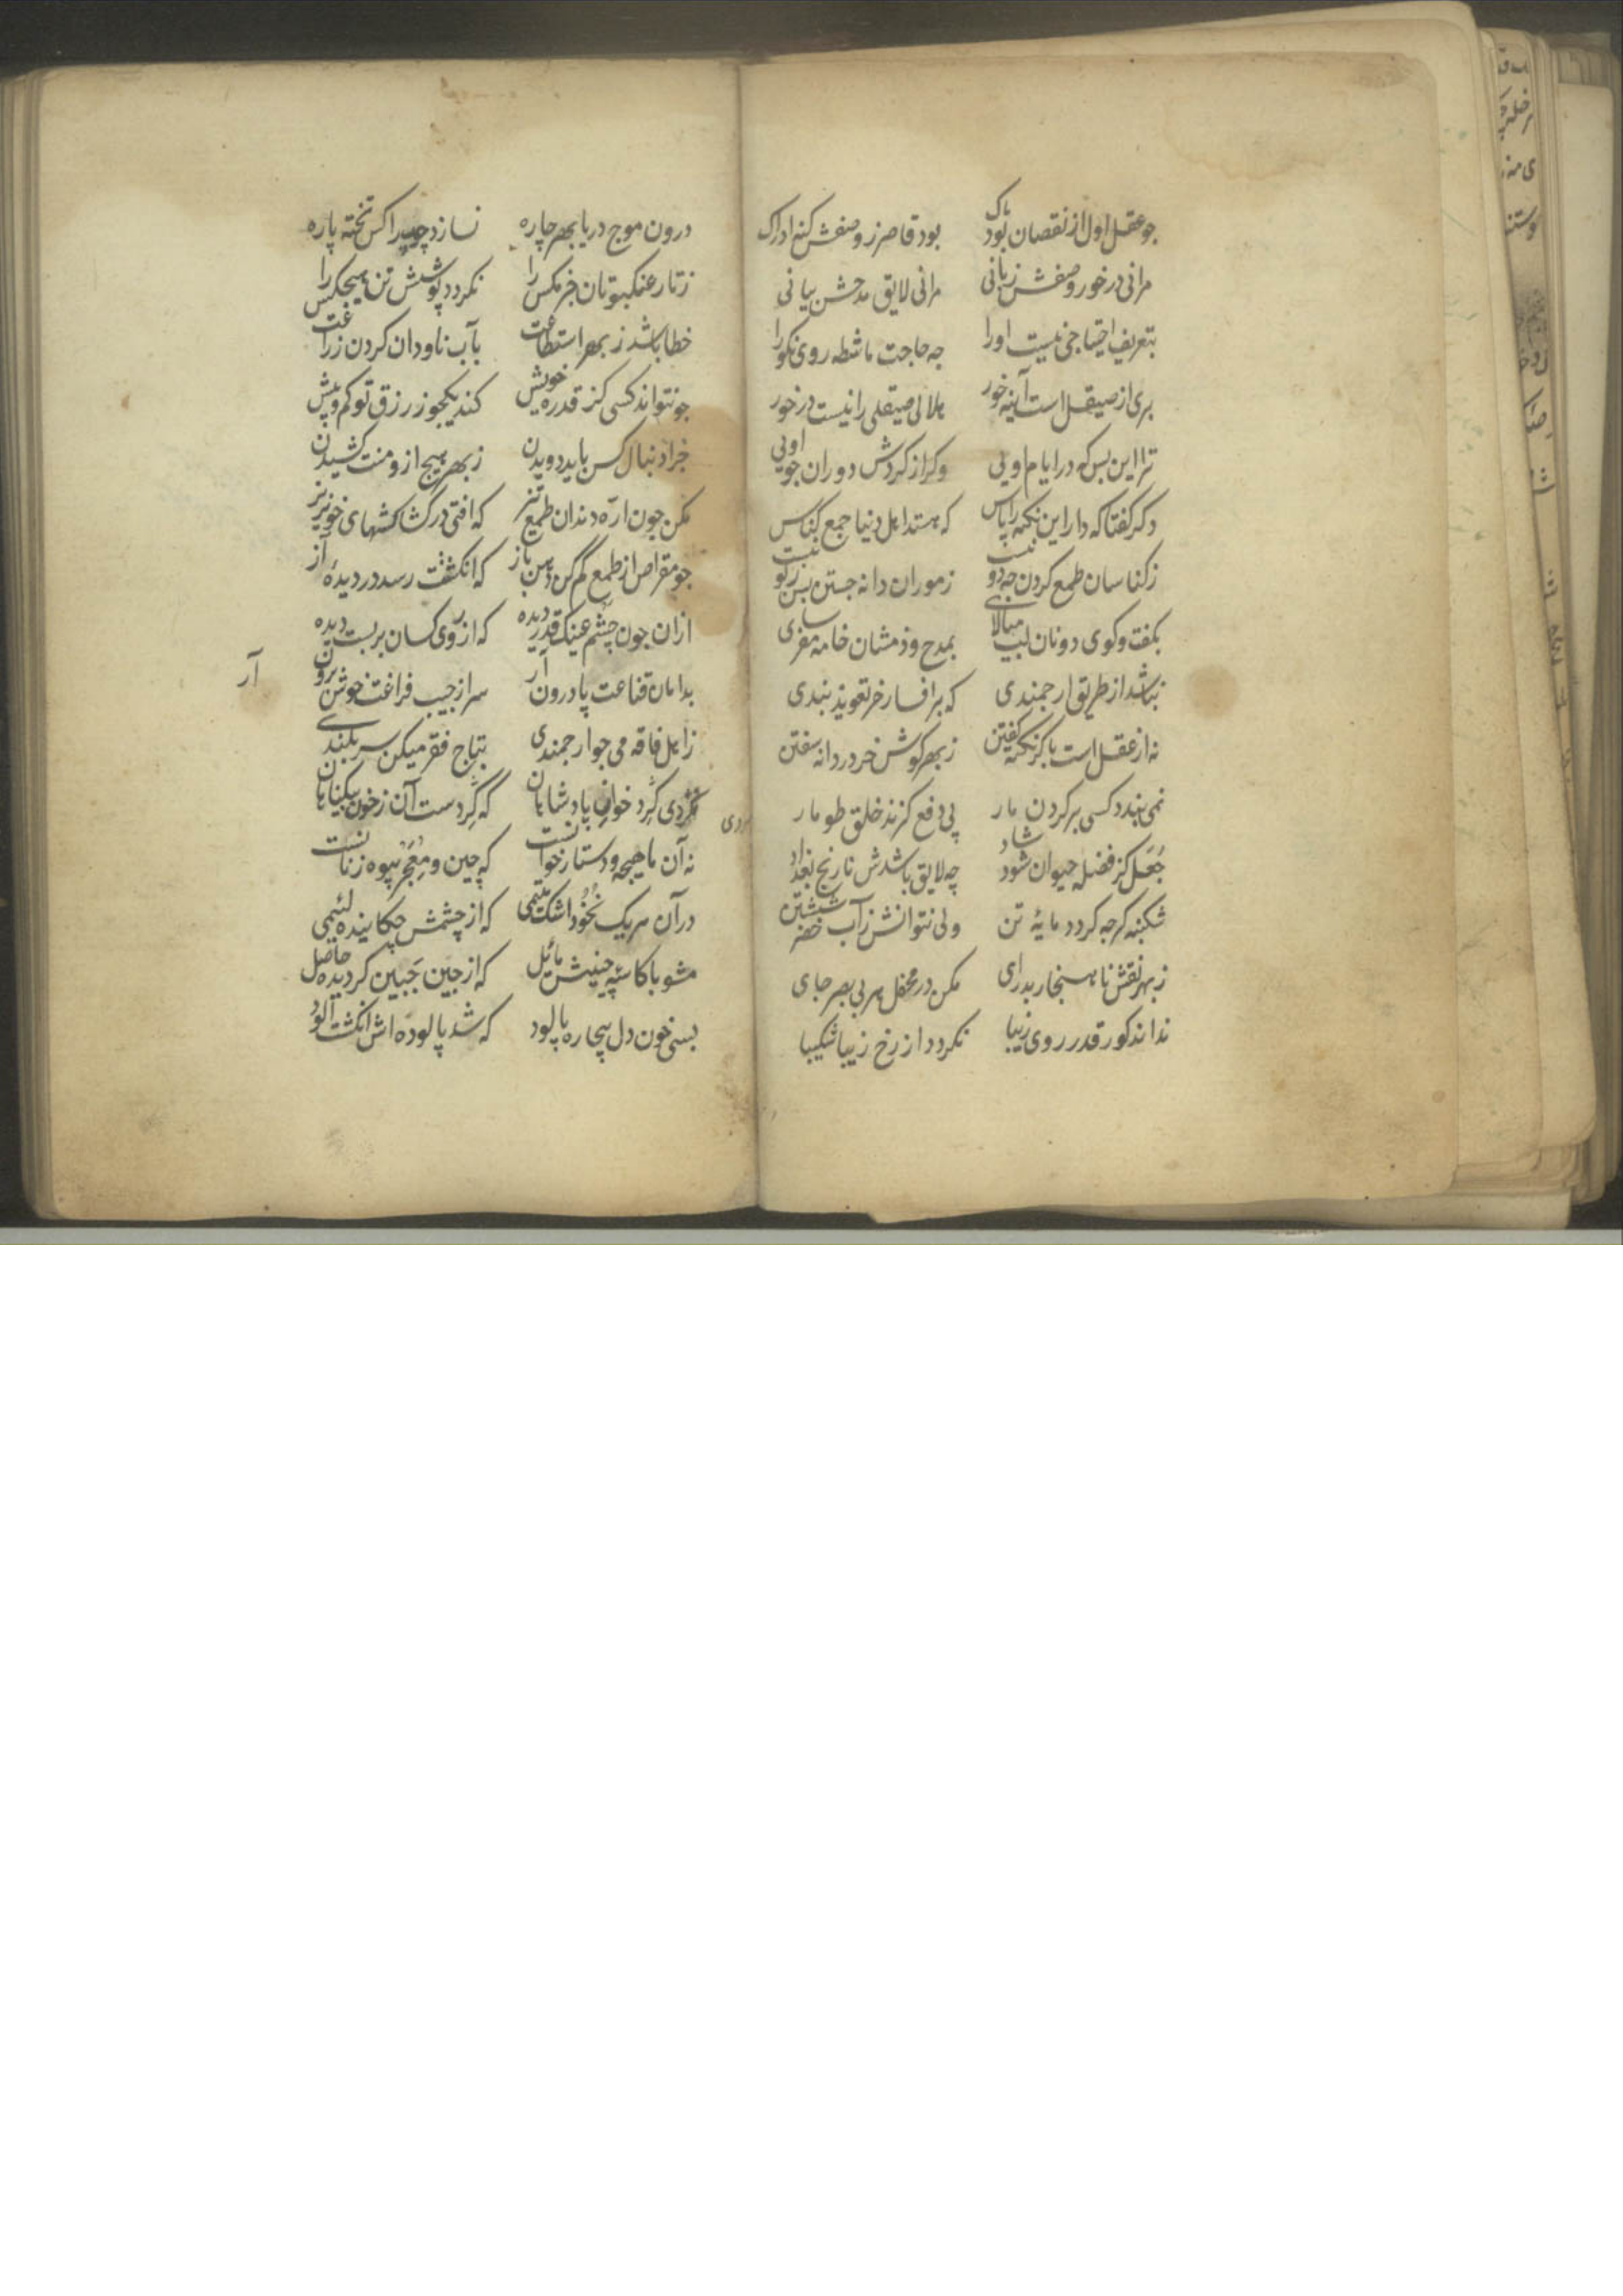 جو عقل اول از نقصان بود پاک بود قاصر ز وصفش کنه ادراک
مرانی در خور وصفش زبانی مرانی لایق مدحش بیانی
بتعریف احتیاجی نیست او را جه حاجت ماشطه روی نکو را
بری از صیقل است آیینه خور هلالی صیقلی را نیست در خور
ترا این بس که در ایام اویی وکر از کردش دوران جویی اویی
دکر کفتا که دار این نکته را پاس که هستند اهل دنیا جمع کناس
ز کناسان طمع کردن جه دو نیست ز موران دانه جستن بس نکو نیست
بکفت وکوی دونان لب میالای بمدح و ذمشان خامه مفرسای
نباشد از طریق ارجمندی که بر افسار خر تعویذ بندی
نه از عقل است باکر نکته کفتن ز بهر کوش خر دردانه سفتن
نمی بندد کسی بر کردن مار پی دفع کزند خلق طومار
جعل کز فضله حیوان شود شاد چه لایق باشدش نارنج بغداد
شکنبه کرجه کردد مایۀ تن ولی نتوانش ز آب خضر شستن
ز بهر نقش ناهنجار بدرای مکن در محفل هر بی بصر جای
نداند کور قدر روی زیبا نکردد از رخ زیبا شکیبا
درون موج دریا بهر چاره نسازد چوب را کس تخته پاره
ز تار عنکبوتان خر مکس را نکردد پوشش تن هیچکس را
خطا باشد ز بهر استطاعت بآب ناودان کردن زراعت
جو نتواند کسی کز قدرۀ خویش کند یکجو ز رزق تو کم و بیش
چرا دنبال کس باید دویدن ز بهر هیچ ازو منت کشیدن
مکن جون اره دندان طمع تیز که افتی در کشاکشهای خونریز
جو مقراض از طمع کم کن دهن باز که انکشتت رسد در دیدۀ آز
ازان جون چشم عینک قدر دیده که از روی کسان بر بست دیده
بدامان قناعت پا درون آر سر از جیب فراغت خوش برون آر
ز اهل فاقه می جو ارجمندی بتاج فقر میکن سر بلندی
نکردی کرد خوان پادشاهان که کرد دست آن ز خون بیکناهان
نه آن ماهیچه و دستار خوانست که چین و معجر بیوه زنانست
در آن هر یک نخود اشک یتیمی که از چشمش چکانیده لئیمی
مشو با کاسۀ چینیش مائل که از چین جبین کردیده حاصل
بسی خون دل بیچاره پالود که شد پالوده اش انکشت آلود